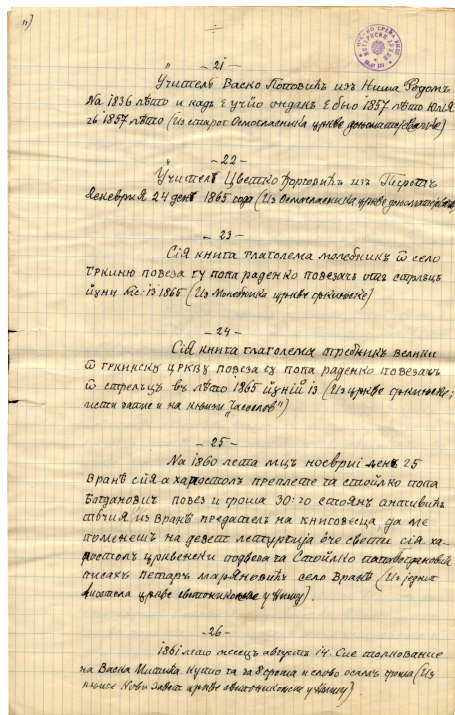 11)
- 21 -
Учителѣ Васко Поповићъ изъ Ниша Родомъ
На 1836 лѣто и кадъ Є учіо онданъ Є было 1857 лѣто Юлія
26 1857 лѣто (Из старог Осмогласника цркве доњоматејевачке)
- 22 -
Учителѣ Цветко Ђорговићъ изъ Пиротъ
Декеврия 24 денѣ 1865 года (Из Осмогласника цркве доњоматејевачке)
- 23 -
Сія книга глаголема молебникъ ѿ село
гркиню повеза гу попа раденко повезачъ отъ стрѣльц
йуни 1865 (Из Молебника цркве гркињске)
- 24 -
Сія книга глаголема требникъ велики
ѿ гркинску цркву повеза гу попа раденко повезачъ
ѿ стрельцъ въ лѣто 1865 йуній із (Из цркве гркињске;
исти запис и на књизи "Часловъ")
- 25 -
На 1860 лета мцъ ноевриі денѣ 25
Вранѣ сія а хапостолъ преплете га стойлко попа
Богдановичъ повез и гроша 30·20 стоянъ
изъ Вранѣ предател на книговесца, да ме
поменешъ на девет летургија оче свети сія ха-
постолъ црквенски подвеза га Стойлко
писахъ Петаръ Маряновићъ село Вранѣ (Из једног
Апостола цркве светониколске у Нишу).
- 26 -
1861 лето месецъ августъ 14. Сие толкование
на Васка Митића купио га за 8 гроша и слово осамъ гроша (Из
књиге Нови Завет цркве светониколске у Нишу).